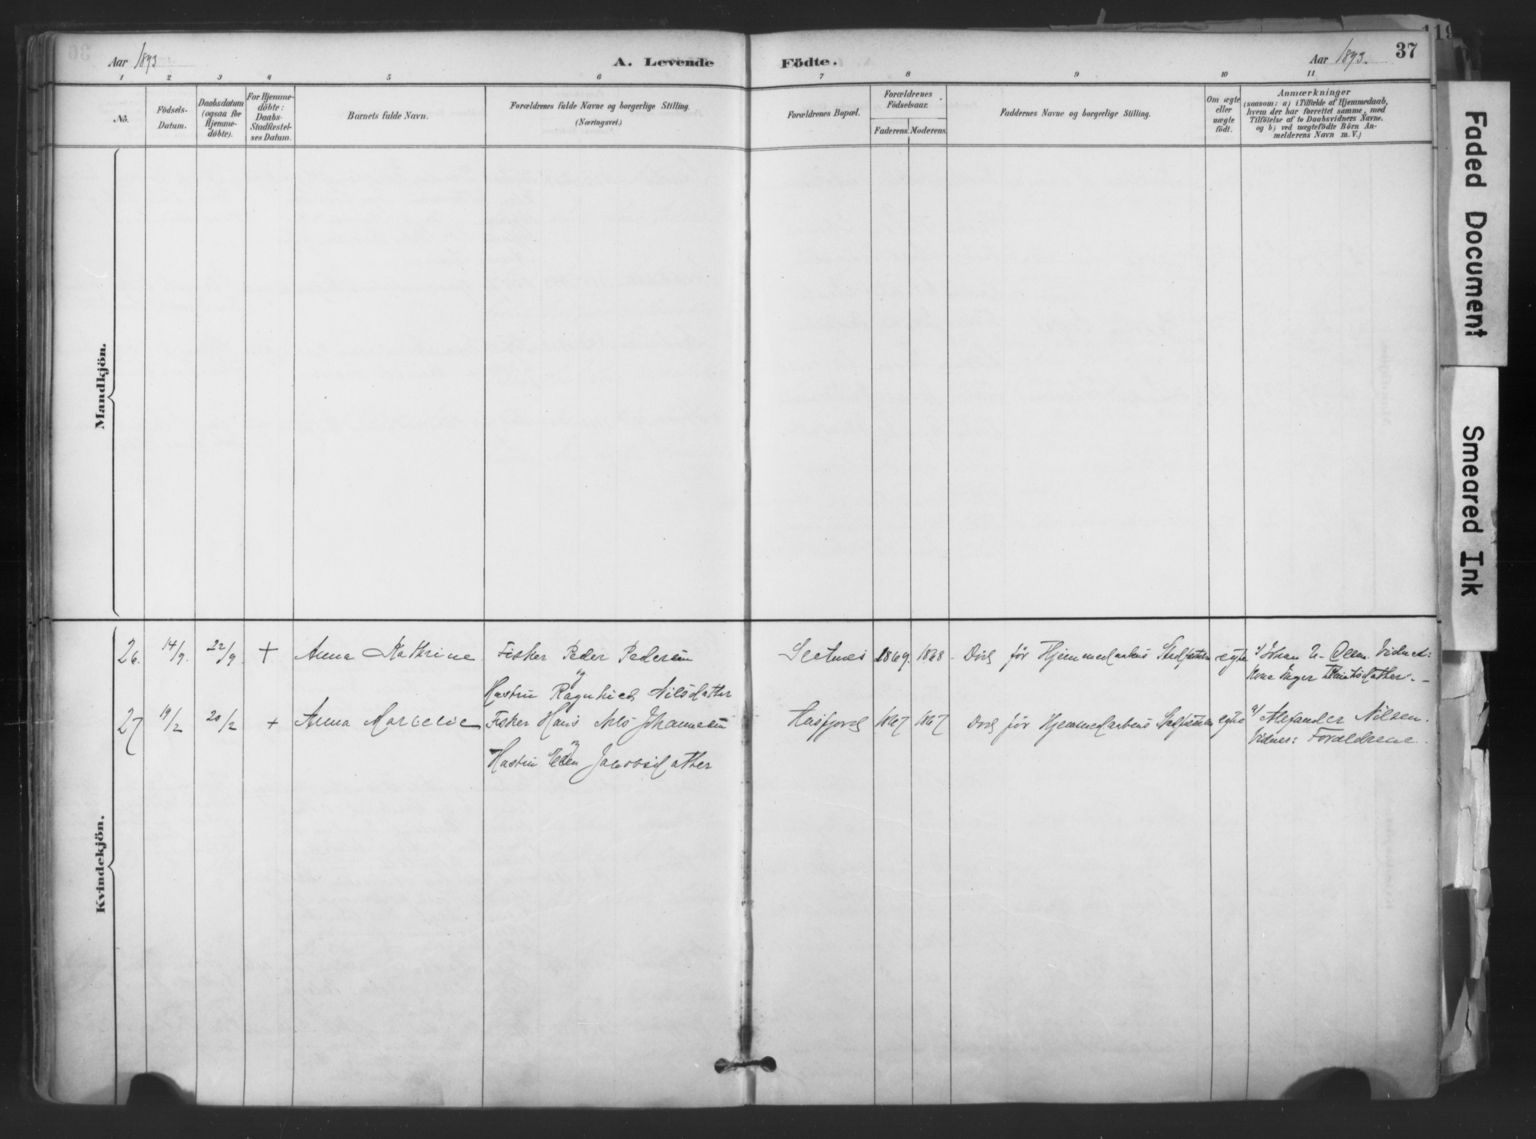 Aar 1893. A. Levende
Födte. Aar 1893. 37
1 2 3 4 5 6 7 8 9 10 11
No.
Födsels-
Datum.
Daabsdatum
(ogsaa for
Hjemme-
döbte).
For Hjemme-
döbte:
Daabs-
Stadfæstel-
ses Datum.
Barnets fulde Navn.
Forældrenes fulde Navne og borgerlige Stilling.
(Næringsvei.)
Forældrenes Bopæl.
Forældrenes
Födselsaar.
Faderens. Moderens.
Faddernes Navne og borgerlige Stilling.
Om ægte
eller
uægte
födt.
Anmærkninger
(saasom: a) i Tilfælde af Hjemmedaab,
hvem der har forrettet samme, med
Tilföielse af to Daabsvidners Navne.
og b) ved uægtefödte Börn An-
melderens Navn m. V.)
Mandkjön.
Kvindekjön.
26. 14/9. 22/9. + Anna Kathrine Fisker Peder Pedersen
og
Hustru Ragnhild Nilsdatter
1869. 1868. Död før Hjemmedaabens Stadfæstelse ægte
27 19/2 20/2 + Anna Fisker Hans Johannesen
og
Hustru Ellen Jacobsdatter
1867 1867 Död før Hjemmedaabens Stadfæstelse ægte a/ Alexander Nilsen.
Vidner: Forældrene.
Faded Document
Smeared Ink